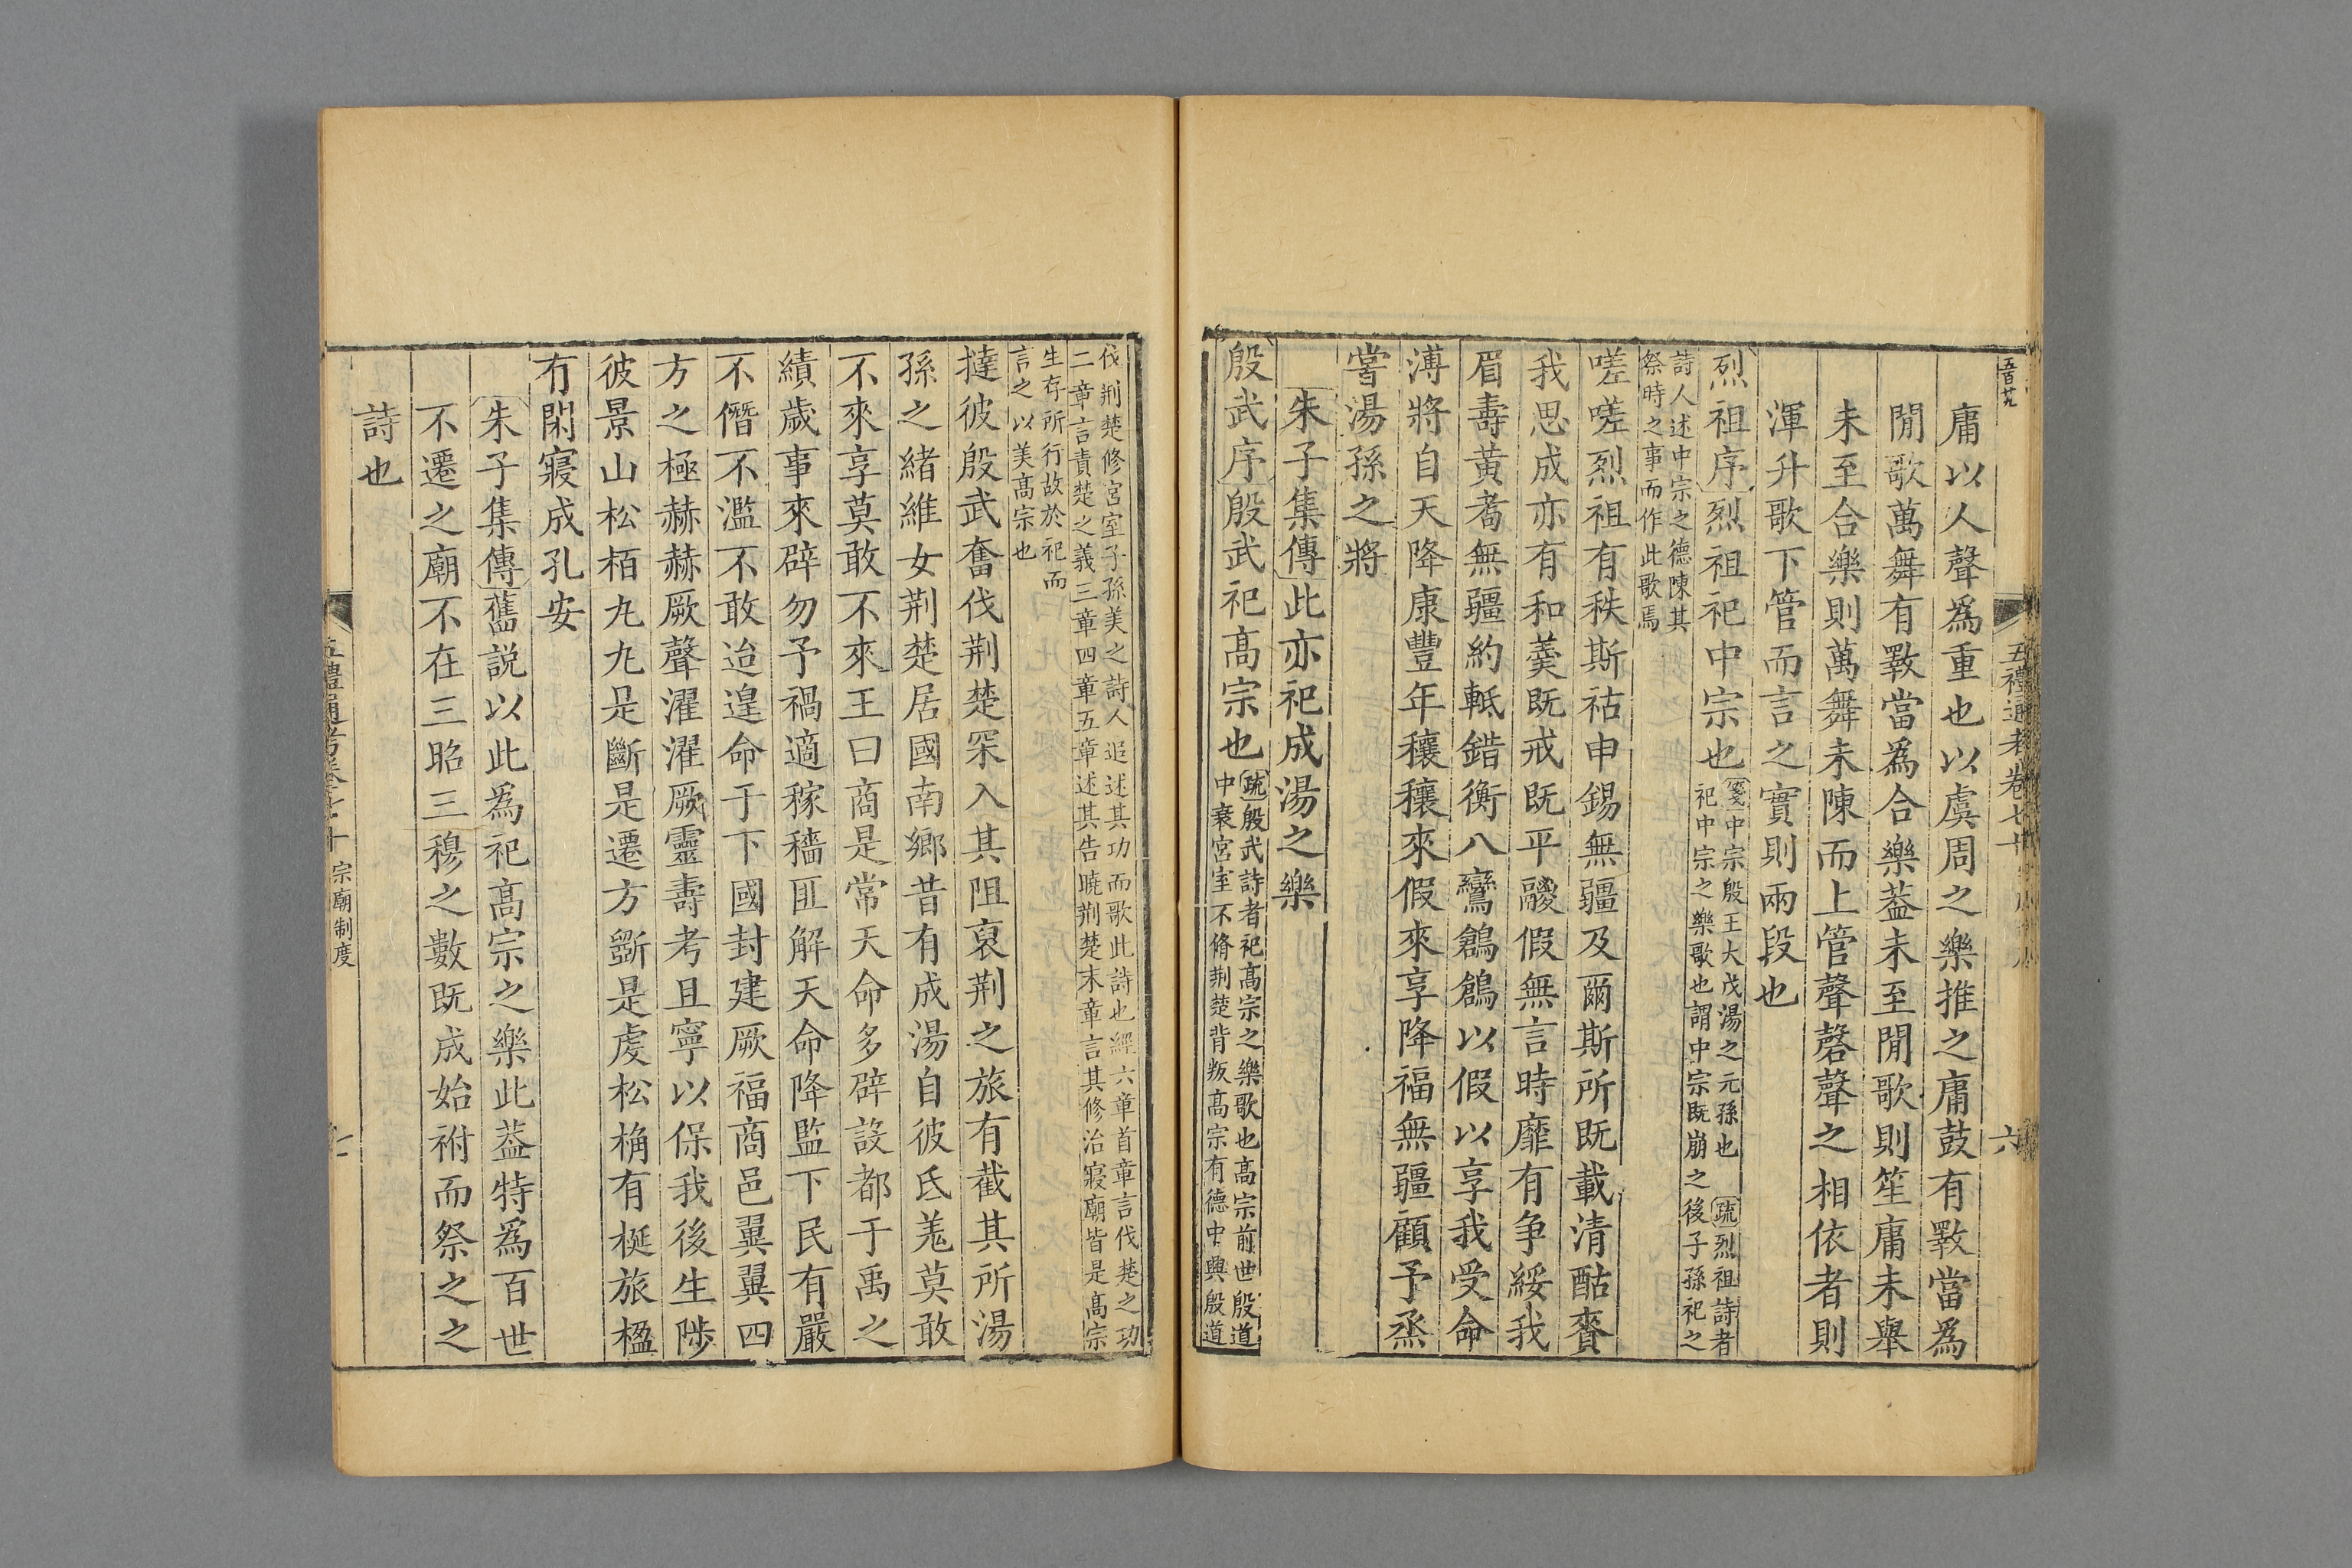 五禮通考卷七十
六
庸以人聲爲重也以虞周之樂推之庸鼓有斁當爲
閒歌萬舞有斁當爲合樂葢未至閒歌則笙庸未舉
未至合樂則萬舞未陳而上管聲磬聲之相依者則
渾升歌下管而言之實則兩段也
烈祖序烈祖祀中宗也
箋中宗殷王大戊湯之元孫也 疏烈祖詩者
祀中宗之樂歌也謂中宗既崩之後子孫祀之
詩人述中宗之德陳其
祭時之事而作此歌焉
嗟嗟烈祖有秩斯祜申錫無疆及爾斯所既載清酤賚
我思成亦有和羹既戒既平鬷假無言時靡有争綏我
眉壽黃耇無疆約軝錯衡八鸞鶬鶬以假以享我受命
溥將自天降康豐年穰穰來假來享降福無疆顧予烝
嘗湯孫之將
朱子集傳此亦祀成湯之樂
殷武序殷武祀髙宗也
疏殷武詩者祀髙宗之樂歌也髙宗前世殷道
中衰宮室不脩荆楚背叛髙宗有德中興殷道
伐荆楚修宮室子孫美之詩人追述其功而歌此詩也經六章首章言伐楚之功
二章言責楚之義三章四章五章述其告曉荆楚末章言其修治寢廟皆是髙宗
生存所行故於祀而
言之以美髙宗也
撻彼殷武奮伐荆楚罙入其阻裒荆之旅有截其所湯
孫之緒維女荆楚居國南鄉昔有成湯自彼氐羌莫敢
不來享莫敢不來王曰商是常天命多辟設都于禹之
績歲事來辟勿予禍適稼穡匪解天命降監下民有嚴
不僭不濫不敢迨遑命于下國封建厥福商邑翼翼四
方之極赫赫厥聲濯濯厥靈壽考且寧以保我後生陟
彼景山松栢丸丸是斷是遷方斲是虔松桷有梴旅楹
有閑寢成孔安
朱子集傳舊説以此爲祀髙宗之樂此葢特爲百世
不遷之廟不在三昭三穆之數既成始祔而祭之之
詩也
五禮通考卷七十
宗廟制度
七